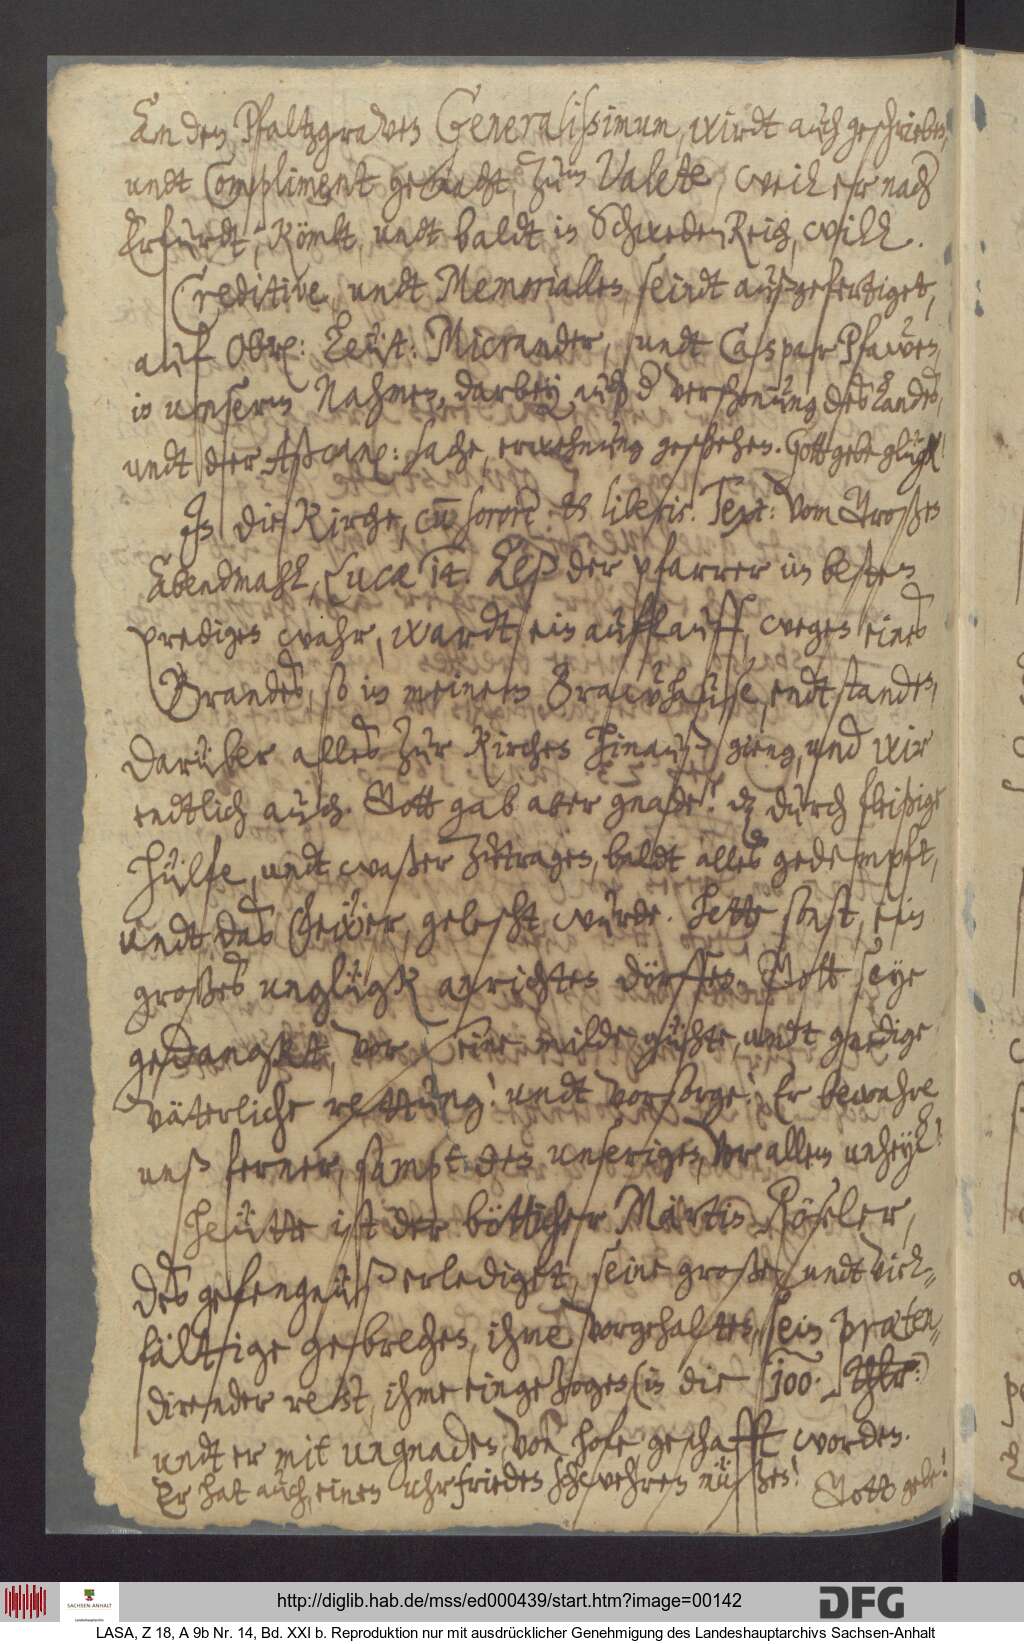 An den Pfaltzgraven Generalissimum, wirdt auch geschrieben,
undt Compliment gemacht, zum Valete, weil er nach
Erfurdt, kömbt, undt baldt in Schweden Reich, will.
Creditive, undt Memorialles, seindt außgefertiget,
auf Obr: Leüt: Micrander, undt Caspar Pfawen,
in unserm Nahmen, darbey auch d verschonung des Landes,
undt der Aßcan: sache, erwehnung geschehen. Gott gebe glügk!
In die Kirche, cum sorore et liberis. Text: vom Großen
Abendmahl, Lucæ 14. Alß der pfarrer im besten
predigen wahr, wardt ein aufflauff, wegen eines
Brandes, so in meinem Brawhause, endtstanden,
darüber alles zur Kirchen hinauß gieng, und wir
endtlich auch. Gott gab aber gnade! dz durch fleißige
hülfe, undt waßer zutragen, baldt alles gedempft,
undt das Feẅer, gelescht wurde. hette sonst, ein
großes unglügk anrichten dörffen. Gott seye
gedangkt, vor seine milde gühte, undt gnedige
väterliche rettung! undt vorsorge! Er bewahre
unß ferner, sampt den unserigen, vor allem unheyl!
Heütte ist der bötticher Martin Röseler,
des gefengnüß erlediget, seine große, undt viel-
fältige gebrechen, ihme vorgehalten, sein præten-
dirender rest, ihme eingezogen (in die 100 Thlr:)
undt er mit ungnaden, von hofe geschafft worden.
Er hat auch, einen uhrfrieden schwehren müßen! Gott gebe!
http://diglib.hab.de/mss/ed000439/start.htm?image=00142
DFG
SACHSEN-ANHALT
Landeshauptarchiv
LASA, Z 18, A 9b Nr. 14, Bd. XXI b. Reproduktion nur mit ausdrücklicher Genehmigung des Landeshauptarchivs Sachsen-Anhalt